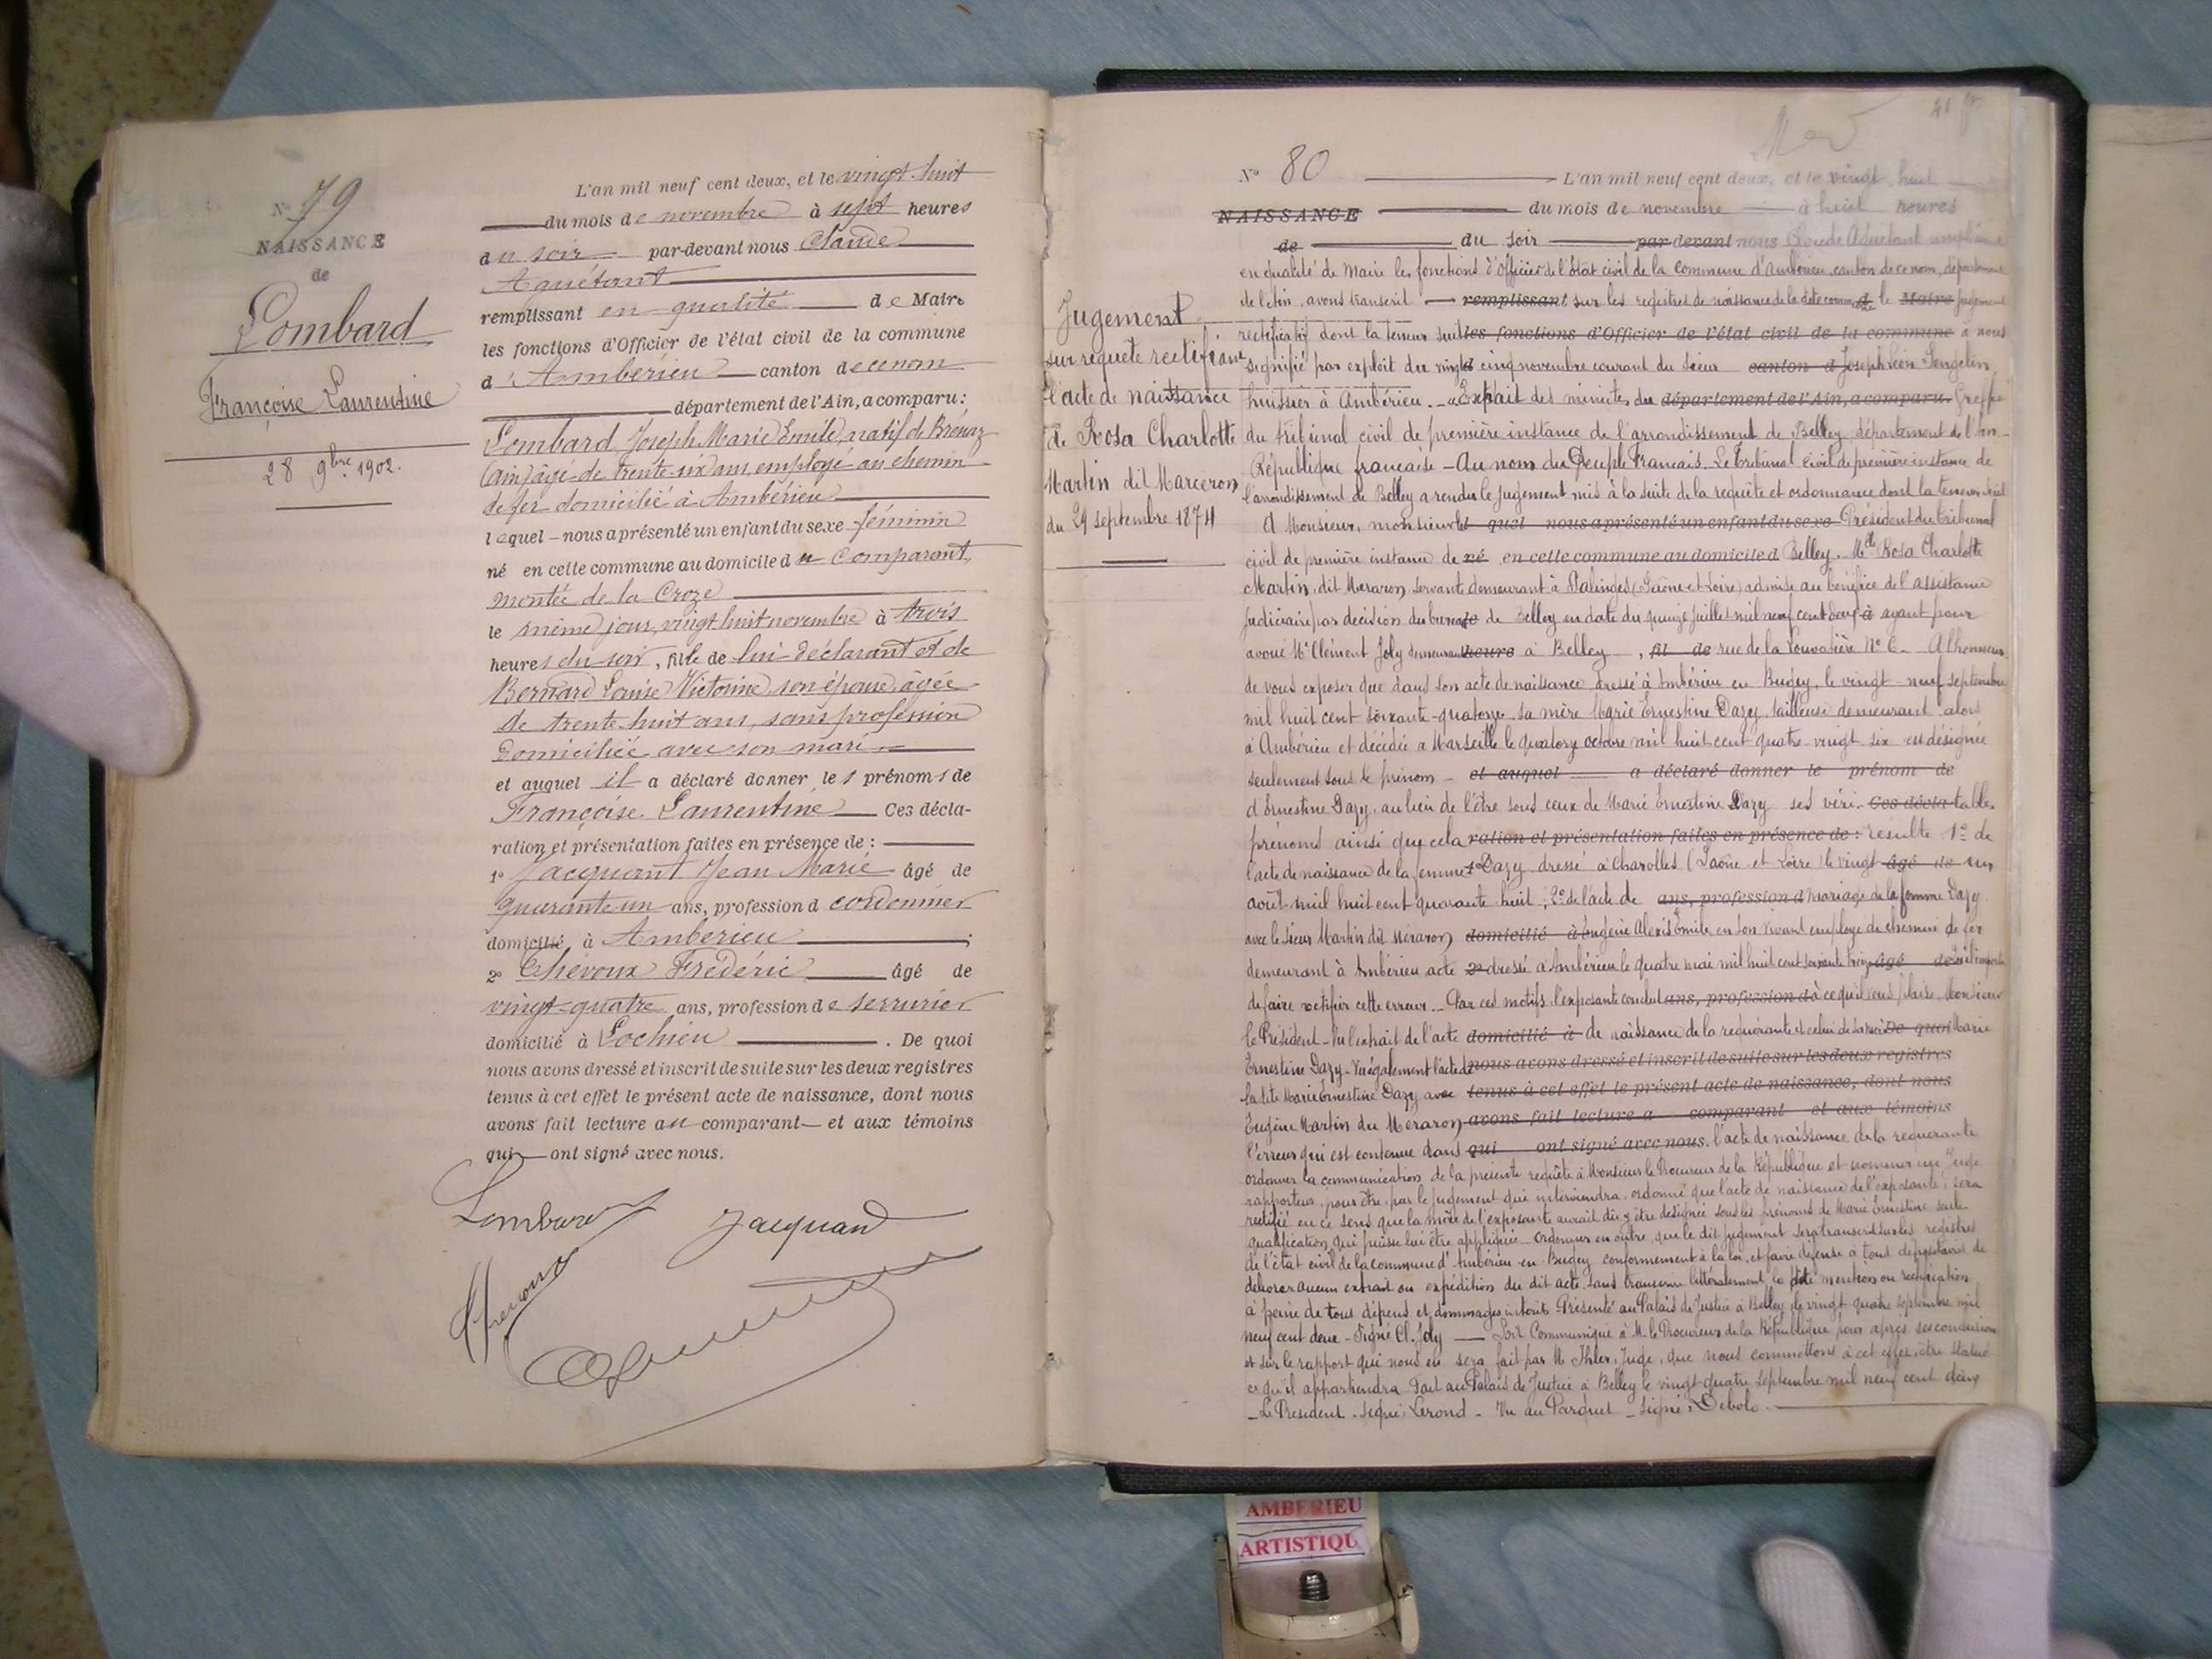 N° 79
NAISSANCE
de
Lombard
Françoise Laurentine
28 9bre 1902.
L'an mil neuf cent deux, et le vingt-huit
du mois de novembre à sept heures
du soir par-devant nous Claude
Aguétant
remplissant en qualité de Maire
les fonctions d'Officier de l'état civil de la commune
d'Ambérieu canton de ce nom
département de l'Ain, a comparu:
Lombard Joseph Marie Emile, natif de Brénaz
(ain) âgé de trente-six ans, employé au chemin
de fer domicilié à Ambérieu
lequel nous a présenté un enfant du sexe féminin
né en cette commune au domicile du Comparant,
montée de la Croze
le même jour, vingt huit novembre à trois
heures du soir, fille de lui déclarant et de
Bernard Louise Victorine son épouse âgée
de trente-huit ans, sans profession
domiciliée avec son mari
et auquel il a déclaré donner les prénoms de
Françoise Laurentine Ces décla-
ration et présentation faites en présence de :
1° Jacquant Jean Marie âgé de
quarante-un ans, profession d cordonnier
domicilié à Ambérieu ;
2° Chevoux Frédéric âgé de
vingt-quatre ans, profession de serrurier
domicilié à Lochieu . De quoi
nous avons dressé et inscrit de suite sur les deux registres
tenus à cet effet le présent acte de naissance, dont nous
avons fait lecture au comparant et aux témoins
qui ont signé avec nous.
Lombard Jacquand
N° 80
L'an mil neuf cent deux, et le vingt huit
NAISSANCE du mois de novembre à huit heures
de du soir par devant nous Claude Aguétant remplissant
en qualité de Maire les fonctions d'Officier de l'état civil de la commune d'Ambérieu, canton de ce nom, département
de l'Ain, avons transcrit remplissant sur les registres de naissance de la dite commune de le Maire jugement
rectificatif dont la teneur suit les fonctions d'Officier de l'état civil de la commune à nous
signifié par exploit du vingt d cinq novembre courant du sieur canton d Joseph Léon
huissier à Ambérieu. - Extrait des minutes du département de l'Ain, a comparu. Greffe
du tribunal civil de première instance de l'arrondissement de Belley département de l'Ain -
République française - Au nom du Peuple Français. Le tribunal civil de première instance de
l'arrondissement de Belley a rendu le jugement mis à la suite de la requête et ordonnance dont la teneur suit
A Monsieur, monsieur le quel nous a présenté un enfant du sexe Président du tribunal
civil de première instance de né en cette commune au domicile d Belley. Mlle Rosa Charlotte
Martin, dit Meraron, servante demeurant à Palinges (Saône et Loire) admise au bénéfice de l'assistance
judiciaire par décision du bureau le de Belley en date du quinze juillet mil neuf cent deux à ayant pour
avoué Me Clément Joly demeurant heure à Belley , fil de rue de la Louvatière N° 6 - A l'honneur
de vous exposer que dans son acte de naissance dressé à Ambérieu en Bugey, le vingt-neuf septembre
mil huit cent soixante-quatorze sa mère Marie Ernestine Dazy, tailleuse demeurant alors
à Ambérieu et décédée à Marseille le quatorze octobre mil huit cent quatre-vingt six est désignée
seulement sous le prénom - et auquel a déclaré donner le prénom de
d'Ernestine Dazy, au lieu de l'être sous ceux de Marie Ernestine Dazy ses véri- Ces décla- tables
prénoms ainsi que cela ration et présentation faites en présence de : résulte 1° de
l'acte de naissance de la femme 1° Dazy dressé à Charolles (Saône et Loire) le vingt âgé de un
août mil huit cent quarante huit ; 2° de l'acte de ans, profession d mariage de la femme Dazy
avec le sieur Martin dit Meraron domicilié à Eugène Alexis Emile, en son vivant employé de chemin de fer
demeurant à Ambérieu acte 2° dressé à Ambérieu le quatre mai mil huit cent soixante treize âgé de
de faire rectifier cette erreur. - Par ces motifs, l'exposante conclut ans, profession d à ce qu'il vous plaise, Monsieur
le Président - Vu l'extrait de l'acte domicilié à de naissance de la requérante et celui de sa mère De quoi Marie
Ernestine Dazy - Vu également l'acte de nous avons dressé et inscrit de suite sur les deux registres
la dite Marie Ernestine Dazy avec tenus à cet effet le présent acte de naissance, dont nous
Eugène Martin dit Meraron avons fait lecture a comparant et aux témoins
l'erreur qui est contenue dans qui ont signé avec nous. l'acte de naissance de la requérante
ordonner la communication de la présente requête à Monsieur le Procureur de la République et nommer un Juge
rapporteur, pour être, par le jugement qui interviendra, ordonné que l'acte de naissance de l'exposante, sera
rectifié en ce sens que la mère de l'exposante aurait dû y être désignée sous les prénoms de Marie Ernestine seule
qualification qui puisse lui être appliquée - ordonner en outre, que le dit jugement sera transcrit sur les registres
de l'état civil de la commune d'Ambérieu en Bugey conformément à la loi, et faire défense à tous dépositaires de
délivrer aucun extrait ou expédition du dit acte sans transcrire littéralement la dite mention ou rectification
à peine de tous dépens et dommages intérêts Présenté au Palais de Justice à Belley, le vingt quatre septembre mil
neuf cent deux - Signé Cl. Joly - Soit Communiqué à M. le Procureur de la République pour après ses conclusions
et sur le rapport qui nous en sera fait par M. Thler, Juge, que nous commettons à cet effet, être statué
ce qu'il appartiendra Fait au Palais de Justice à Belley le vingt-quatre septembre mil neuf cent deux
- Le Président - signé, Lerond - Vu au Parquet - signé, Debolo.
Jugement
sur requête rectifiant
l'acte de naissance
de Rosa Charlotte
Martin dit Marceron
du 29 septembre 1874
AMBERIEU
ARTISTIQU